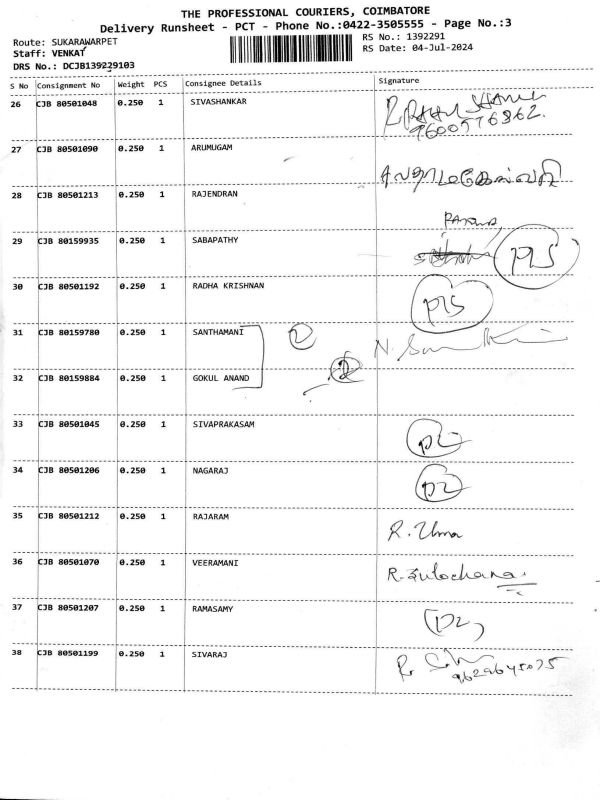 THE PROFESSIONAL COURIERS, COIMBATORE
Delivery Runsheet - PCT - Phone No.:0422-3505555 - Page No.:3
Route: SUKARAWARPET RS No.: 1392291
Staff: VENKAT RS Date: 04-Jul-2024
DRS No.: DCJB139229103
S No Consignment No Weight PCS Consignee Details Signature
26 CJB 80501048 0.250 1 SIVASHANKAR
27 CJB 80501090 0.250 1 ARUMUGAM
28 CJB 80501213 0.250 1 RAJENDRAN
29 CJB 80159935 0.250 1 SABAPATHY
30 CJB 80501192 0.250 1 RADHA KRISHNAN
31 CJB 80159780 0.250 1 SANTHAMANI 2
32 CJB 80159884 0.250 1 GOKUL ANAND 2
33 CJB 80501045 0.250 1 SIVAPRAKASAM
34 CJB 80501206 0.250 1 NAGARAJ
35 CJB 80501212 0.250 1 RAJARAM R. Uma
36 CJB 80501070 0.250 1 VEERAMANI R. Sulochana.
37 CJB 80501207 0.250 1 RAMASAMY
38 CJB 80501199 0.250 1 SIVARAJ